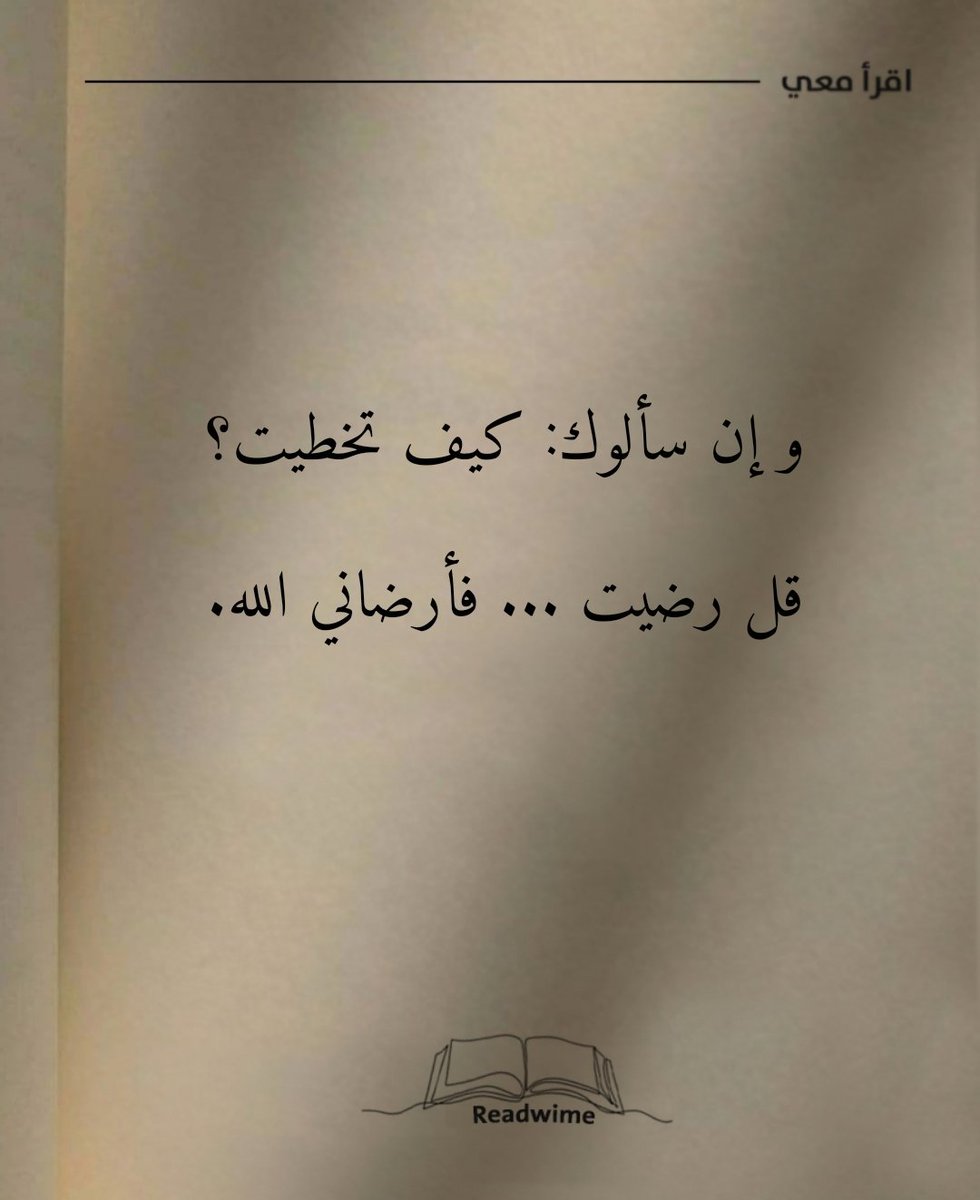 اقرأ معي
و إن سألوك: كيف تخطيت؟
قل رضيت ... فأرضاني الله.
Readwime